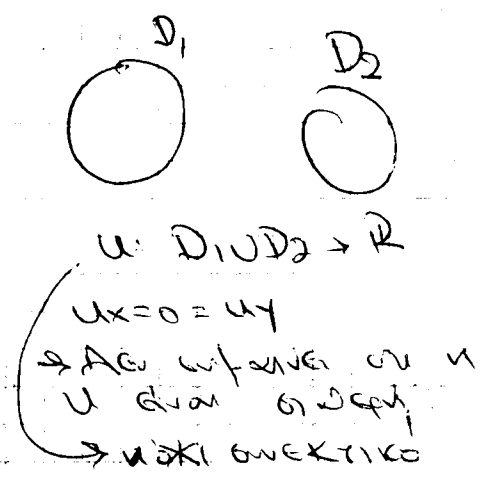 D₁ D₂
u: D₁∪D₂ → ℝ
ux=0=uy
→ Δεν σημαίνει ότι η
u είναι σταθερή
→ όχι συνεκτικό